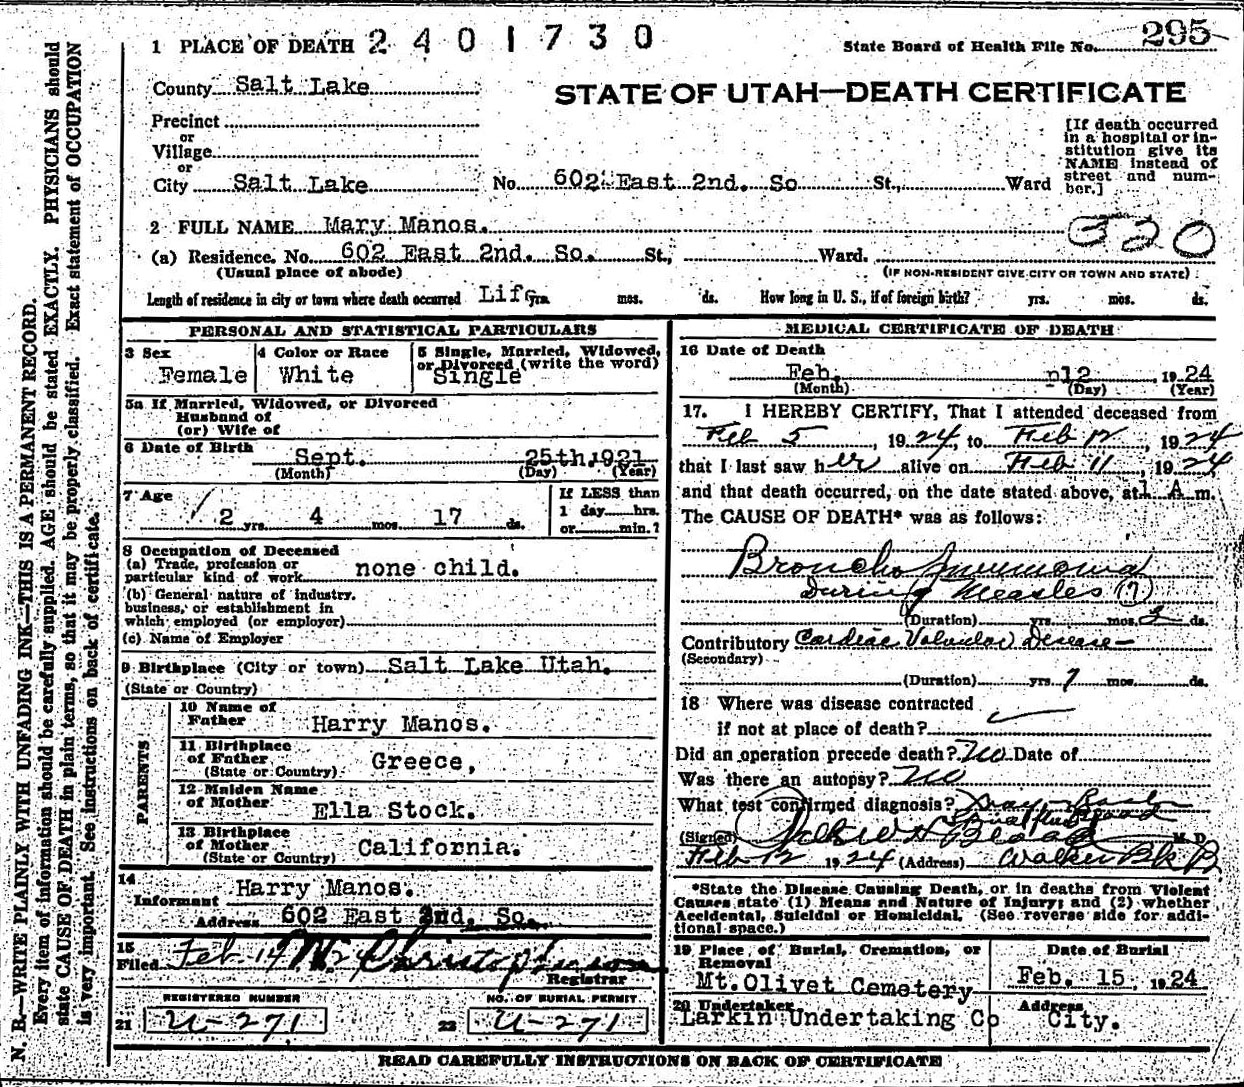 1 PLACE OF DEATH 2401730
State Board of Health File No. 295
County Salt Lake
STATE OF UTAH—DEATH CERTIFICATE
Precinct
or
Village
or
City Salt Lake No. 602 East 2nd. So St., Ward
[If death occurred
in a hospital or in-
stitution give its
NAME instead of
street and num-
ber.]
2 FULL NAME Mary Manos.
320
(a) Residence. No. 602 East 2nd. So. St., Ward.
(Usual place of abode) (IF NON-RESIDENT GIVE CITY OR TOWN AND STATE)
Length of residence in city or town where death occurred Life yrs. mos. ds. How long in U. S., if of foreign birth? yrs. mos. ds.
PERSONAL AND STATISTICAL PARTICULARS
3 Sex Female
4 Color or Race White
5 Single, Married, Widowed, or Divorced (write the word) Single
5a If Married, Widowed, or Divorced
Husband of
(or) Wife of
6 Date of Birth Sept. 25th. 1921
(Month) (Day) (Year)
7 Age 2 yrs. 4 mos. 17 ds.
If LESS than
1 day hrs.
or min.?
8 Occupation of Deceased
(a) Trade, profession or
particular kind of work none child.
(b) General nature of industry,
business, or establishment in
which employed (or employer)
(c) Name of Employer
9 Birthplace (City or town) Salt Lake Utah.
(State or Country)
PARENTS
10 Name of Father Harry Manos.
11 Birthplace of Father Greece,
(State or Country)
12 Maiden Name of Mother Ella Stock.
13 Birthplace of Mother California.
(State or Country)
14
Informant Harry Manos.
Address 602 East 2nd. So.
15
Filed Feb. 14 24
Registrar
REGISTERED NUMBER
21 U-271
NO. OF BURIAL PERMIT
22 U-271
MEDICAL CERTIFICATE OF DEATH
16 Date of Death
Feb. 12, 1924
(Month) (Day) (Year)
17. I HEREBY CERTIFY, That I attended deceased from
Feb 5, 1924, to Feb 12, 1924
that I last saw her alive on Feb 11, 1924,
and that death occurred, on the date stated above, at 1 A m.
The CAUSE OF DEATH* was as follows:
Broncho Pneumonia
During Measles (7)
(Duration) yrs. mos. 3 ds.
Contributory Cardiac Valvular Disease
(Secondary)
(Duration) yrs. 7 mos. ds.
18 Where was disease contracted
if not at place of death?
Did an operation precede death? No Date of
Was there an autopsy? No
What test confirmed diagnosis?
(Signed) M. D.
Feb 12 1924 (Address) Walker Bk B
*State the Disease Causing Death, or in deaths from Violent
Causes state (1) Means and Nature of Injury; and (2) whether
Accidental, Suicidal or Homicidal. (See reverse side for addi-
tional space.)
19 Place of Burial, Cremation, or
Removal
Mt. Olivet Cemetery
Date of Burial
Feb. 15, 1924
20 Undertaker
Larkin Undertaking Co
Address
City.
READ CAREFULLY INSTRUCTIONS ON BACK OF CERTIFICATE
N. B.—WRITE PLAINLY WITH UNFADING INK—THIS IS A PERMANENT RECORD.
Every item of information should be carefully supplied. AGE should be stated EXACTLY. PHYSICIANS should
state CAUSE OF DEATH in plain terms, so that it may be properly classified. Exact statement of OCCUPATION
is very important. See instructions on back of certificate.